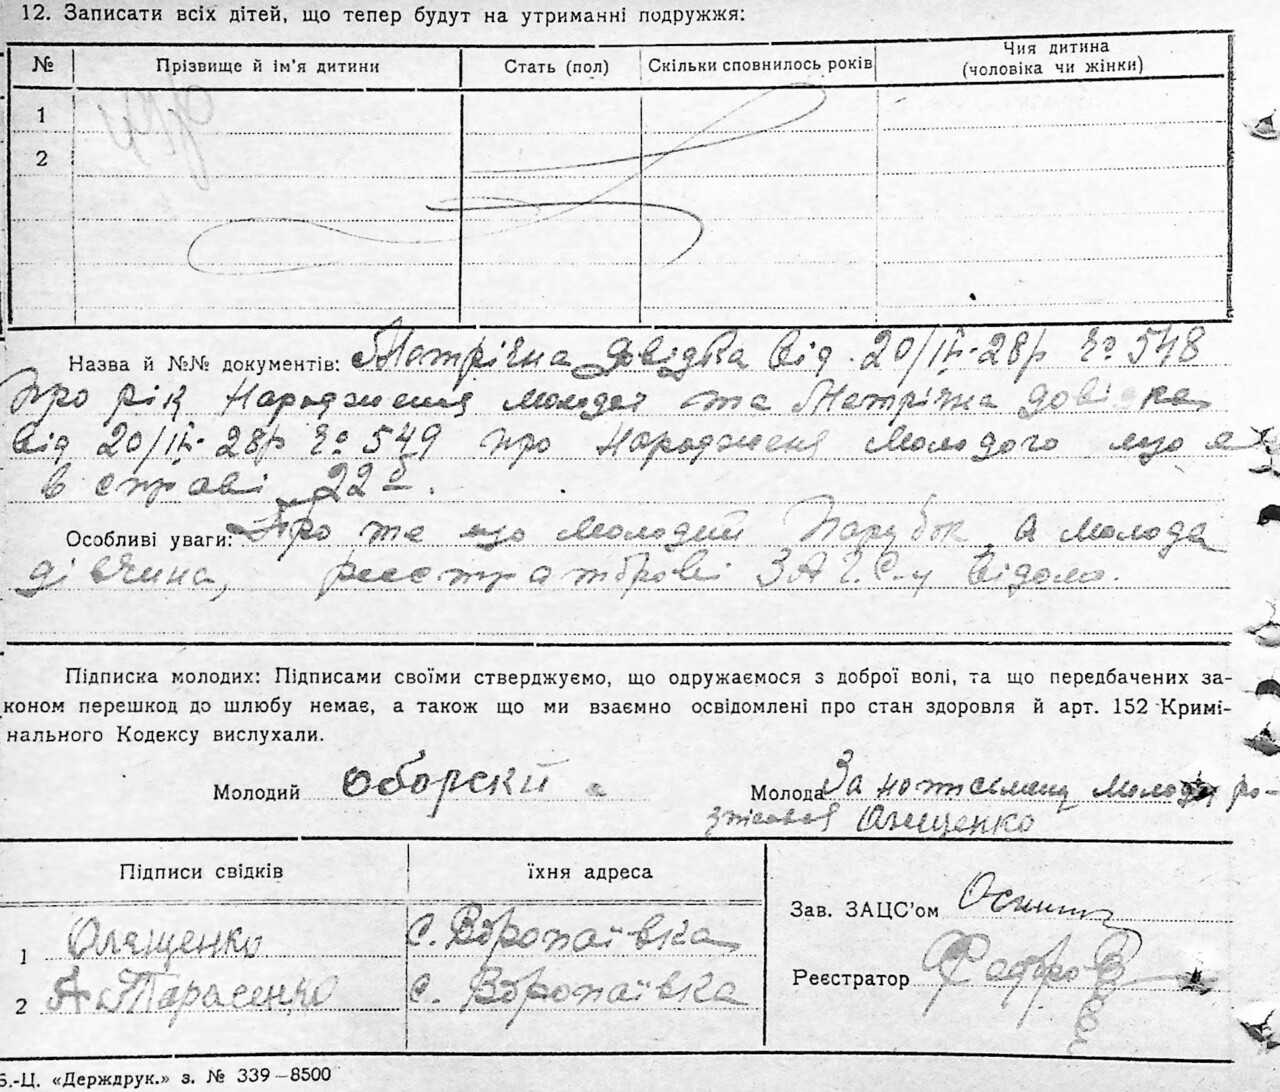 12. Записати всіх дітей, що тепер будут на утриманні подружжя:
№ Прізвище й ім'я дитини Стать (пол) Скільки сповнилось років Чия дитина
(чоловіка чи жінки)
1
2
Назва й №№ документів: Метрічна довідка від 20/IV-28р № 548
про рік народження молодої та Метрічна довідка
від 20/IV-28р № 549 про народженя молодого що є
в справі 22
Особливі уваги: Про те що молодий парубок а молода
дівчина, реєстраторові ЗАГС-у відомо.
Підписка молодих: Підписами своїми стверджуємо, що одружаємося з доброї волі, та що передбачених за-
коном перешкод до шлюбу немає, а також що ми взаємно освідомлені про стан здоровля й арт. 152 Кримі-
нального Кодексу вислухали.
Молодий Оборский Молода За неписьмену молоду ро-
Олещенко
Підписи свідків їхня адреса
Зав. ЗАЦС'ом
1 Олещенко с. Воропаївка
Реєстратор
2 А Тарасенко с. Воропаївка
Б.-Ц. «Держдрук.» з. № 339—8500